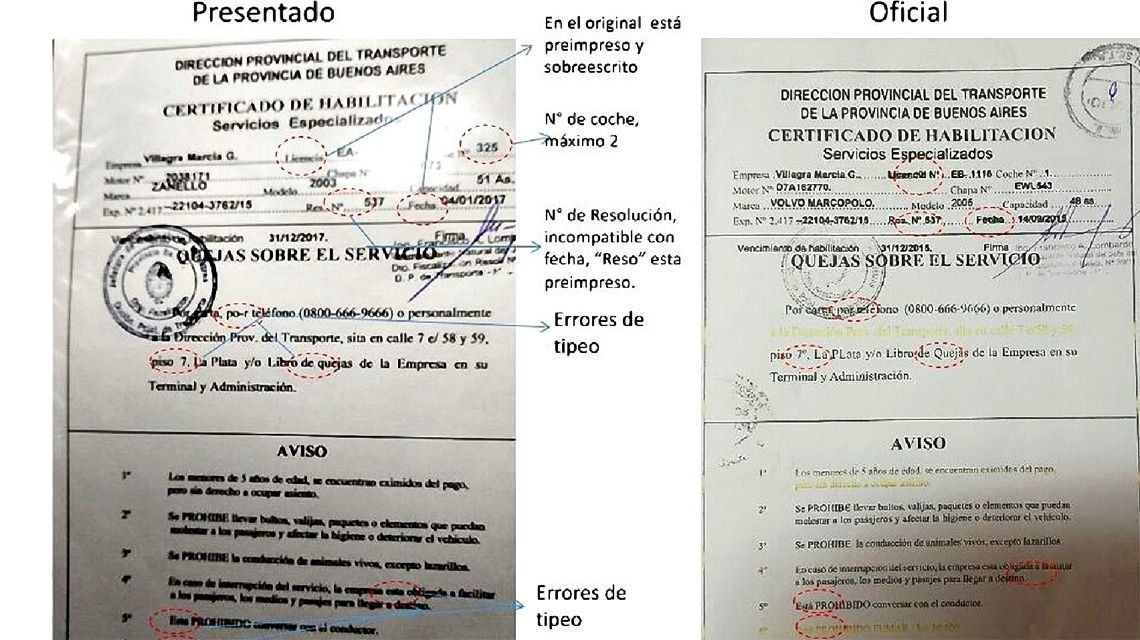 Presentado
DIRECCION PROVINCIAL DEL TRANSPORTE
DE LA PROVINCIA DE BUENOS AIRES
CERTIFICADO DE HABILITACION
Servicios Especializados
Empresa Villagra Marcia G. Licencia EA- Nº 325
Motor Nº 2038171 Chapa Nº
Marca ZANELLO Modelo 2003 Capacidad 51 As.
Exp. Nº 2.417 -22104-3762/15 Res. Nº 537 Fecha 04/01/2017
Vencimiento de habilitación 31/12/2017. Firma
QUEJAS SOBRE EL SERVICIO
Por carta, po-r teléfono (0800-666-9666) o personalmente
a la Dirección Prov. del Transporte, sita en calle 7 e/ 58 y 59,
piso 7, La Plata y/o Libro de quejas de la Empresa en su
Terminal y Administración.
AVISO
1º Los menores de 5 años de edad, se encuentran eximidos del pago,
pero sin derecho a ocupar asiento.
2º Se PROHIBE llevar bultos, valijas, paquetes o elementos que puedan
molestar a los pasajeros y afectar la higiene o deteriorar el vehículo.
3º Se PROHIBE la conducción de animales vivos, excepto lazarillos.
4º En caso de interrupción del servicio, la empresa esta obligada a facilitar
a los pasajeros, los medios y pasajes para llegar a destino.
5º Esta PROHIBIDO conversar con el conductor.
En el original está
preimpreso y
sobreescrito
N° de coche,
máximo 2
N° de Resolución,
incompatible con
fecha, “Reso” esta
preimpreso.
Errores de
tipeo
Errores de
tipeo
Oficial
DIRECCION PROVINCIAL DEL TRANSPORTE
DE LA PROVINCIA DE BUENOS AIRES
CERTIFICADO DE HABILITACION
Servicios Especializados
Empresa Villagra Marcia G. Licencia Nº EB-1116 Coche Nº 1.
Motor Nº D7A162770. Chapa Nº EWL543
Marca VOLVO MARCOPOLO. Modelo 2005 Capacidad 48 as.
Exp. Nº 2.417 -22104-3762/15 Res. Nº 537 Fecha 14/09/2015
Vencimiento de habilitación 31/12/2015. Firma
QUEJAS SOBRE EL SERVICIO
Por carta, por teléfono (0800-666-9666) o personalmente
a la Dirección Prov. del Transporte, sita en calle 7 e/58 y 59,
piso 7º, La PLata y/o Libro de Quejas de la Empresa en su
Terminal y Administración.
AVISO
1º Los menores de 5 años de edad, se encuentran eximidos del pago,
pero sin derecho a ocupar asiento.
2º Se PROHIBE llevar bultos, valijas, paquetes o elementos que puedan
molestar a los pasajeros y afectar la higiene o deteriorar el vehículo.
3º Se PROHIBE la conducción de animales vivos, excepto lazarillos.
4º En caso de interrupción del servicio, la empresa esta obligada a facilitar
a los pasajeros, los medios y pasajes para llegar a destino.
5º Está PROHIBIDO conversar con el conductor.
6º Esta PROHIBIDO FUMAR